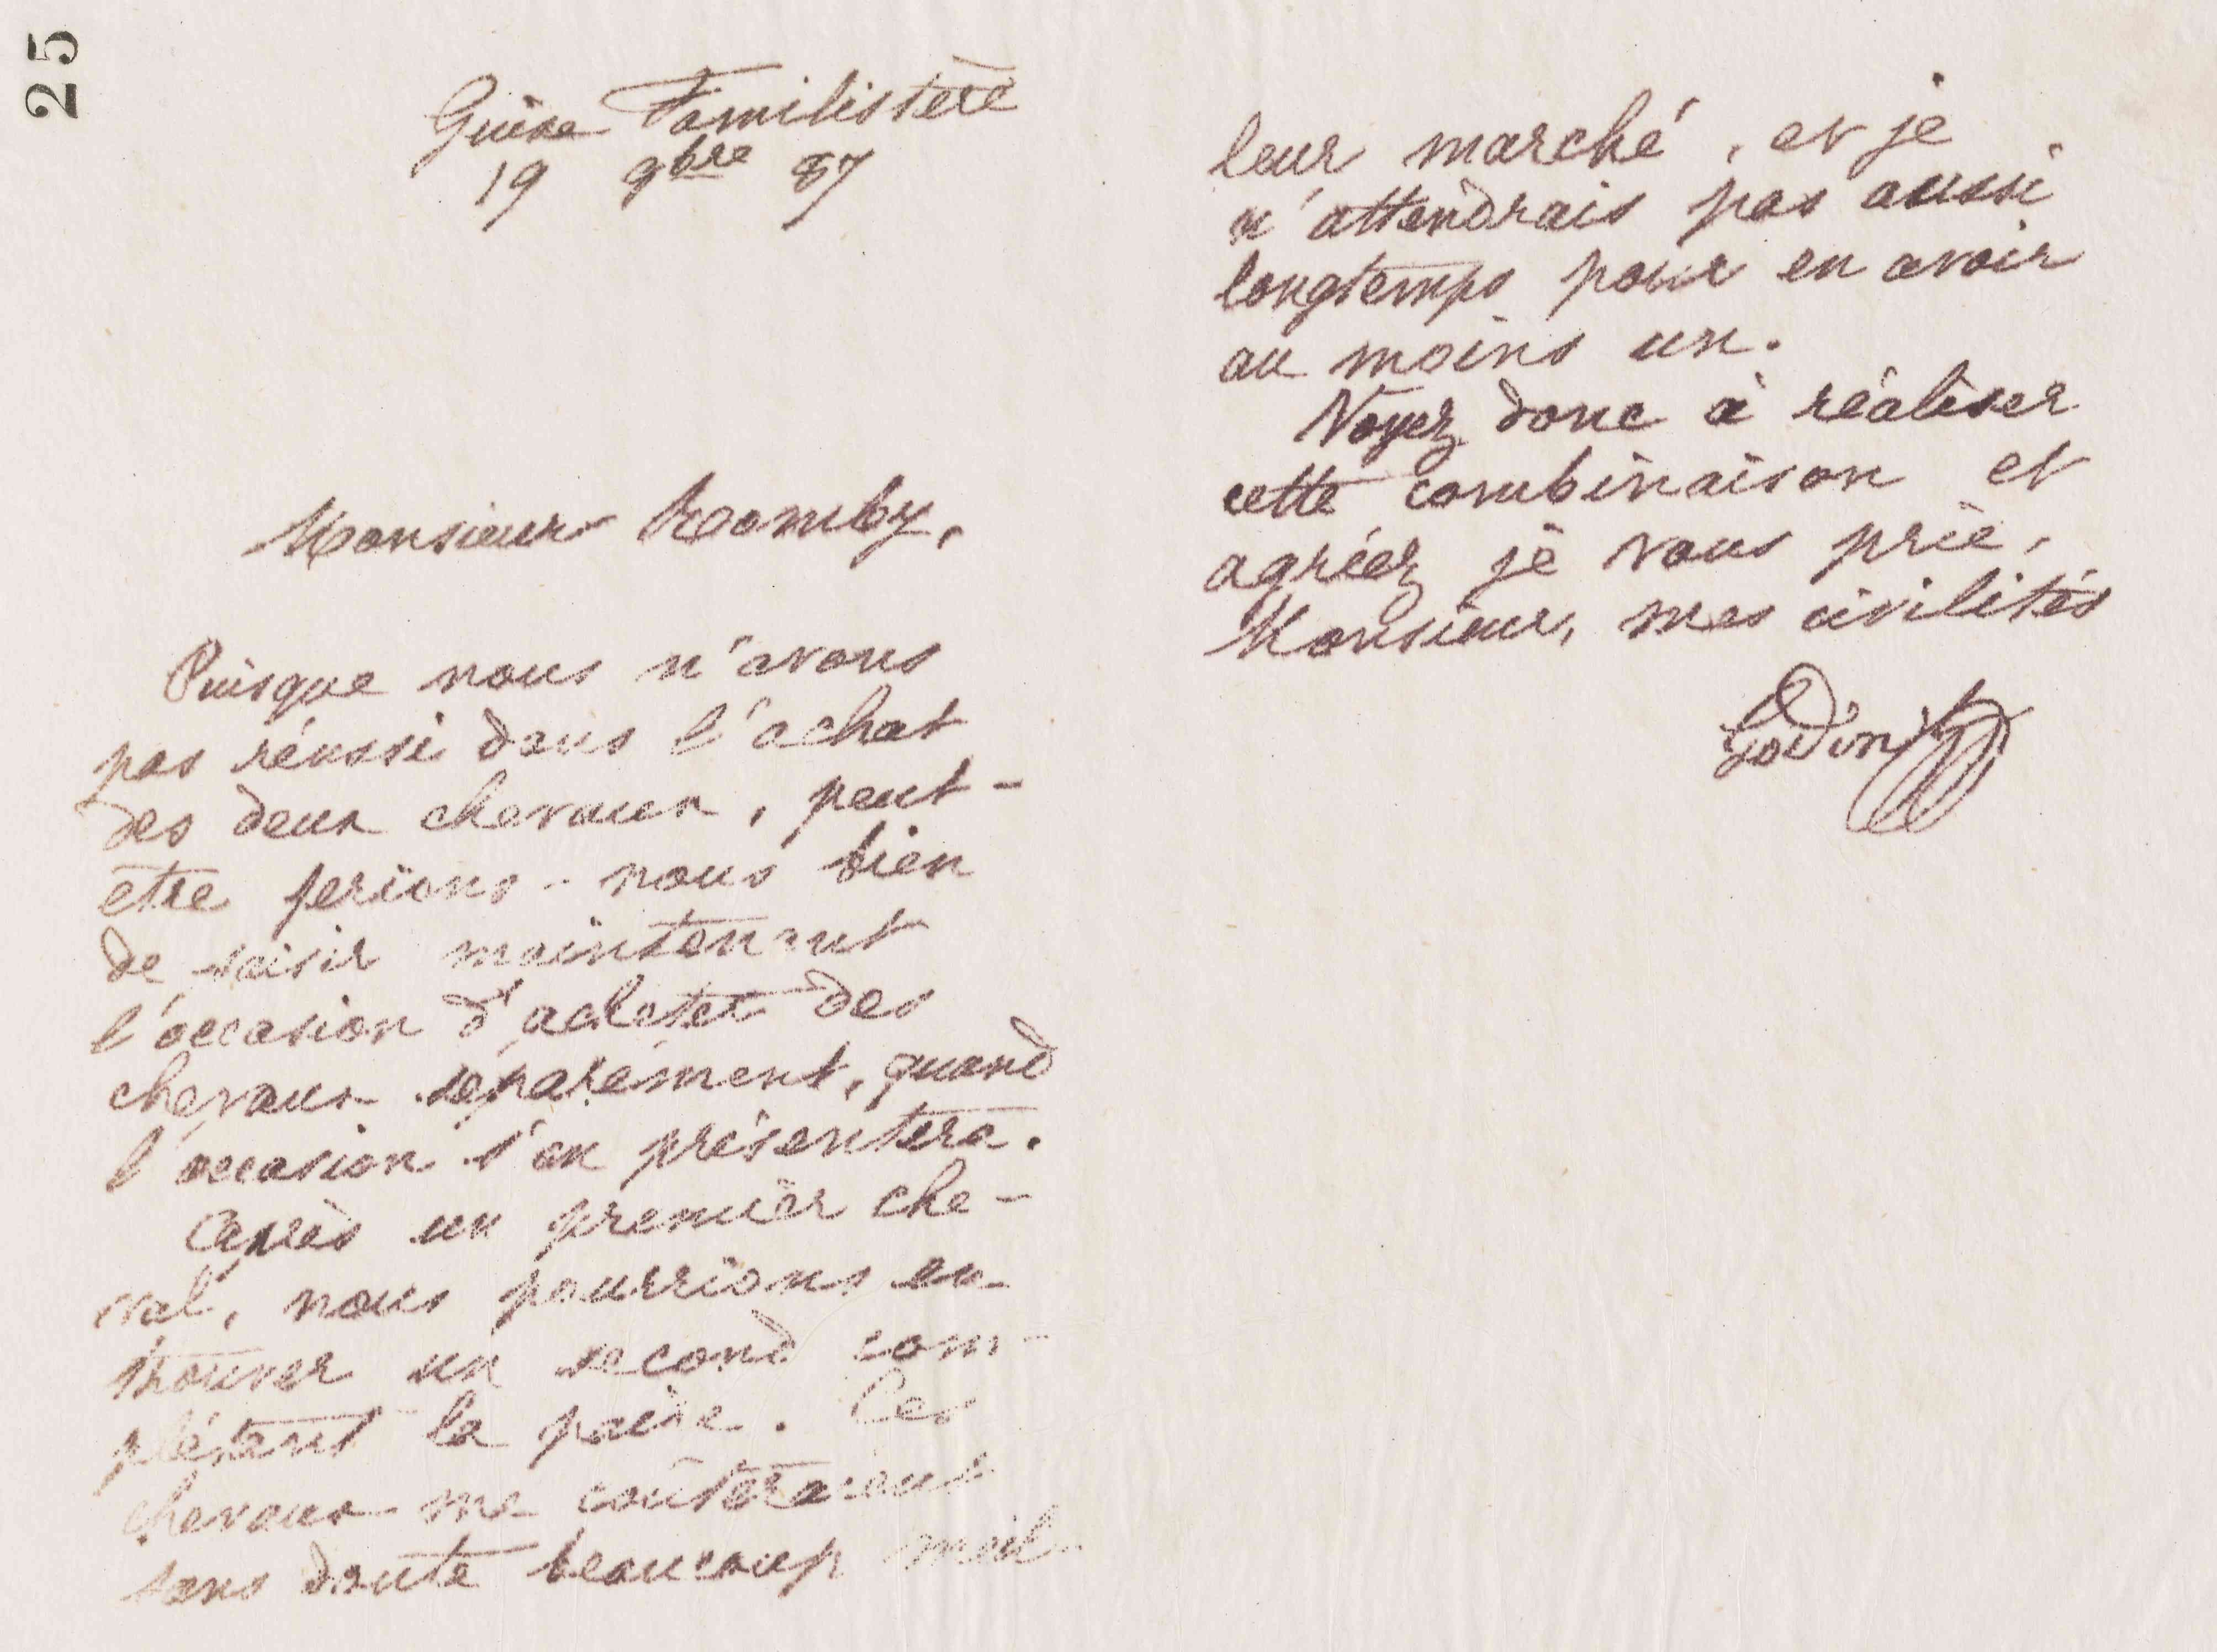 25
Guise Familistère
19 9bre 87
Monsieur Roomby,
Puisque nous n'avons
pas réussi dans l'achat
des deux chevaux, peut-
être ferions-nous bien
de saisir maintenant
l'occasion d'acheter des
chevaux séparément, quand
l'occasion s'en présentera.
Après un premier che-
val, nous pourrions en
trouver un second com-
plétant la paire. Ces
chevaux me coûteraient
sans doute beaucoup meil-
leur marché, et je
n'attendrais pas aussi
longtemps pour en avoir
au moins un.
Voyez donc à réaliser
cette combinaison et
agréez je vous prie,
Monsieur, mes civilités
Godin